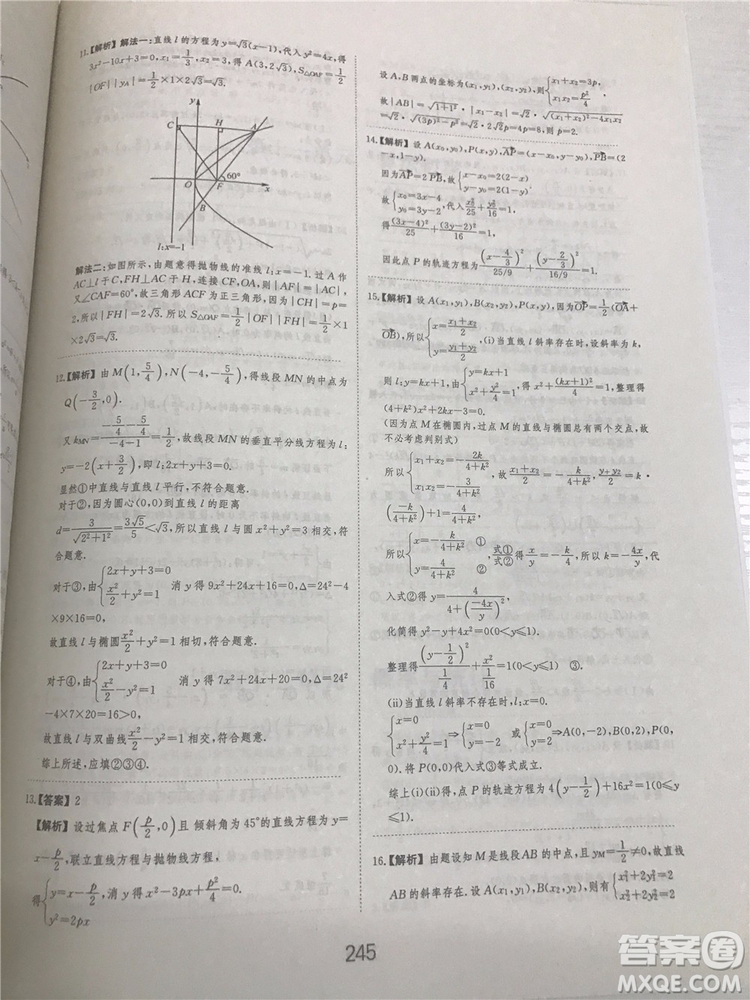 11.【解析】解法一:直线 l 的方程为 y=√3(x-1),代入 y²=4x,得
3x²-10x+3=0,x₁=1/3,x₂=3,得 A(3,2√3),S△OAF=1/2
|OF||yA|=1/2×1×2√3=√3.
y
C H A
O F 60° x
B
l:x=-1
解法二:如图所示,由题意得抛物线的准线 l:x=-1. 过 A 作
AC⊥l 于 C,AH⊥AC 于 H,连接 CF,OA,则|AF|=|AC|,
又∠CAF=60°,故三角形 ACF 为正三角形,因为|CH|=p=
2,所以|FH|=2√3. 所以 S△OAF=1/2|OF||FH|=1/2×1×
2√3=√3.
12.【解析】由 M(1,5/4),N(-4,-5/4),得线段 MN 的中点为
Q(-3/2,0).
又 kMN=(-5/4-5/4)/(-4-1)=1/2,故线段 MN 的垂直平分线方程为 l:
y=-2(x+3/2),即 l:2x+y+3=0.
显然①中直线与直线 l 平行,不符合题意.
对于②,因为圆心(0,0)到直线 l 的距离
d=3/√(2²+1²)=3√5/5<√3,所以直线 l 与圆 x²+y²=3 相交,符
合题意.
对于③,由{2x+y+3=0 x²/2+y²=1 消 y 得 9x²+24x+16=0,Δ=24²-4
×9×16=0,
故直线 l 与椭圆 x²/2+y²=1 相切,符合题意.
对于④,由{2x+y+3=0 x²/2-y²=1 消 y 得 7x²+24x+20=0,Δ=24²
-4×7×20=16>0,
故直线 l 与双曲线 x²/2-y²=1 相交,符合题意.
综上所述,应填②③④.
13.【答案】2
【解析】设过焦点 F(p/2,0)且 倾斜角为 45°的直线方程为 y=
x-p/2,联立直线方程与抛物线方程,
得{y=x-p/2 y²=2px 消 y 得 x²-3px+p²/4=0.
设 A,B 两点的坐标为(x₁,y₁),(x₂,y₂),则{x₁+x₂=3p, x₁x₂=p²/4
故|AB|=√(1+1²)·|x₁-x₂|=√2·√((x₁+x₂)²-4x₁x₂)
=√2·√((3p)²-p²)=√2·2√2p=4p=8,则 p=2.
14.【解析】设 A(x₀,y₀),P(x,y),AP=(x-x₀,y-y₀),PB=(2
-x,1-y).
因为 AP=2PB,所以{x-x₀=2(2-x) y-y₀=2(1-y)
故{x₀=3x-4 y₀=3y-2,代入 x₀²/25+y₀²/16=1,
得(3x-4)²/25+(3y-2)²/16=1,
因此点 P 的轨迹方程为 (x-4/3)²/(25/9)+(y-2/3)²/(16/9)=1.
15.【解析】设 A(x₁,y₁),B(x₂,y₂),P(x,y),因为 OP=1/2(OA+
OB),所以{x=(x₁+x₂)/2 y=(y₁+y₂)/2,(ⅰ)当直线 l 斜率存在时,设斜率为 k,
则 l:y=kx+1,因此{y=kx+1 x²+y²/4=1,得 x²+(kx+1)²/4=1,整理得
(4+k²)x²+2kx-3=0.
(因为点 M 在椭圆内,过点 M 的直线与椭圆总有两个交点,故
不必考虑判别式)
所以{x₁+x₂=-2k/(4+k²) x₁x₂=-3/(4+k²),故 (x₁+x₂)/2=-k/(4+k²),(y₁+y₂)/2=4/(4+k²),
所以{x=-k/(4+k²) ① y=4/(4+k²) ②,式①/式②得 x/y=-k/4,所以 k=-4x/y,代
入式②得 y=4/(4+(-4x/y)²)
化简得 y²-y+4x²=0(0<y≤1)
整理得 (y-1/2)²/(1/4)+x²/(1/16)=1(0<y≤1) ③.
(ⅱ)当直线 l 斜率不存在时,l:x=0.
故{x=0 x²+y²/4=1⇒{x=0 y=-2 或{x=0 y=2⇒A(0,-2),B(0,2),P(0,0)
即. 将 P(0,0)代入式③等式成立.
综上(ⅰ)(ⅱ)得,点 P 的轨迹方程为 4(y-1/2)²+16x²=1(0≤y
≤1).
16.【解析】由题设知 M 是线段 AB 的中点,且 yM=1/2≠0,故直线
AB 的斜率存在. 设 A(x₁,y₁),B(x₂,y₂),则有{x₁²+2y₁²=2 x₂²+2y₂²=2
245
答案圈
MXQE.COM